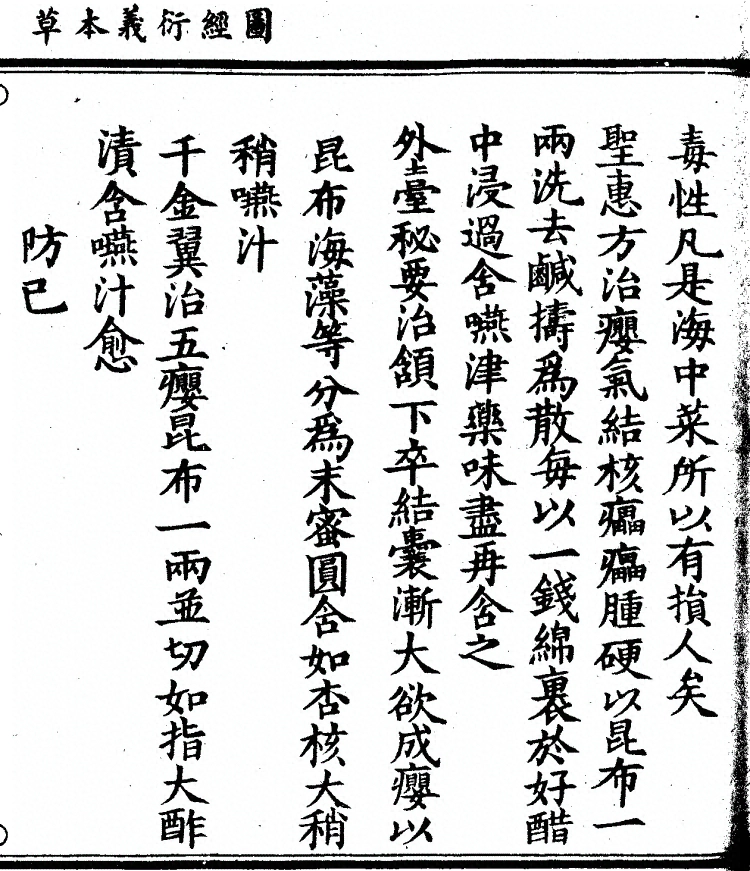 圖經衍義本草
毒性凡是海中菜所以有損人矣
聖惠方治癭氣結核𤻤𤻤腫硬以昆布一
兩洗去鹹擣爲散每以一錢綿裹於好醋
中浸過含嚥津藥味盡再含之
外臺秘要治頷下卒結囊漸大欲成癭以
昆布海藻等分爲末蜜圓含如杏核大稍
稍嚥汁
千金翼治五癭昆布一兩並切如指大酢
漬含嚥汁愈
防已